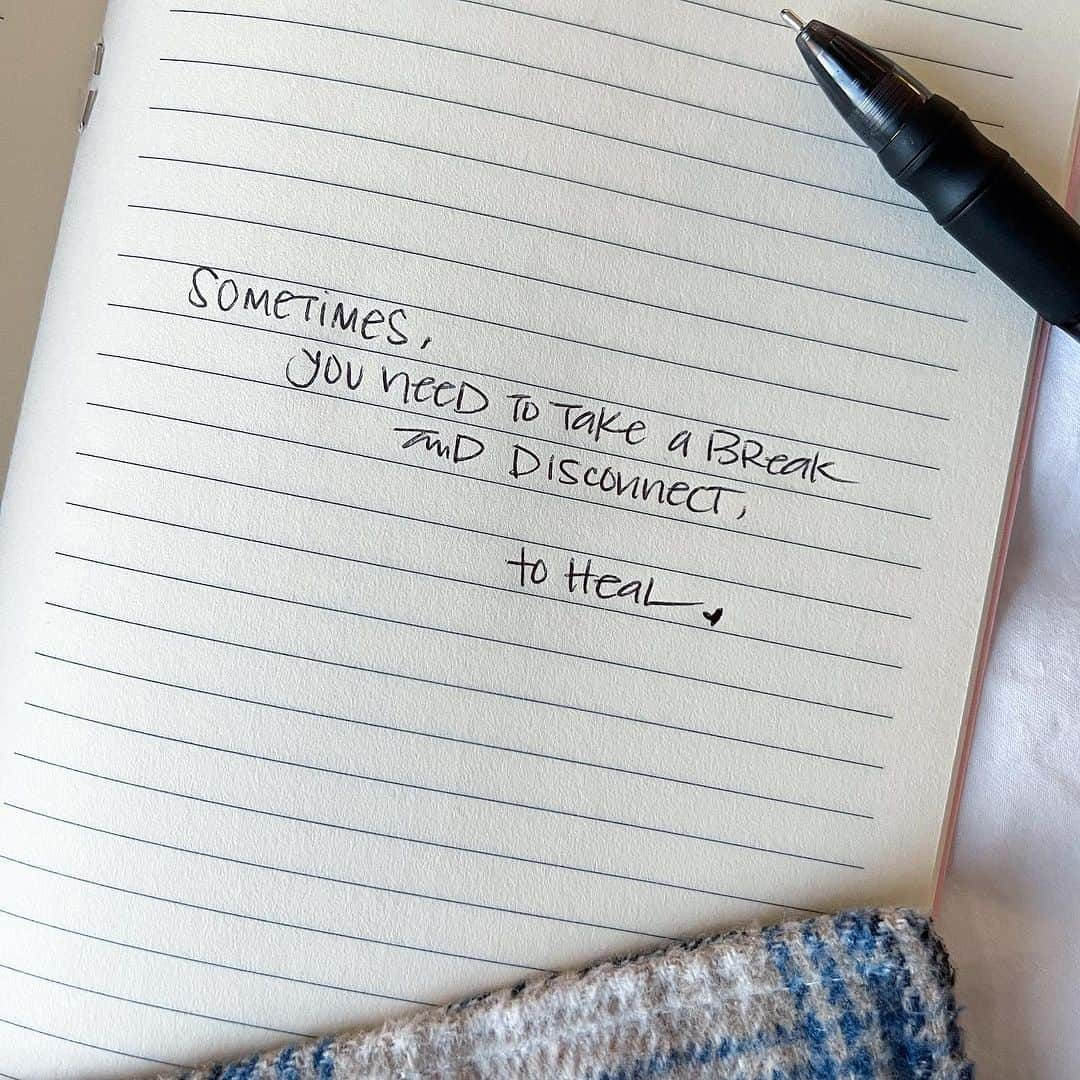 SOMETIMES,
you need to Take a Break
and Disconnect,
to Heal